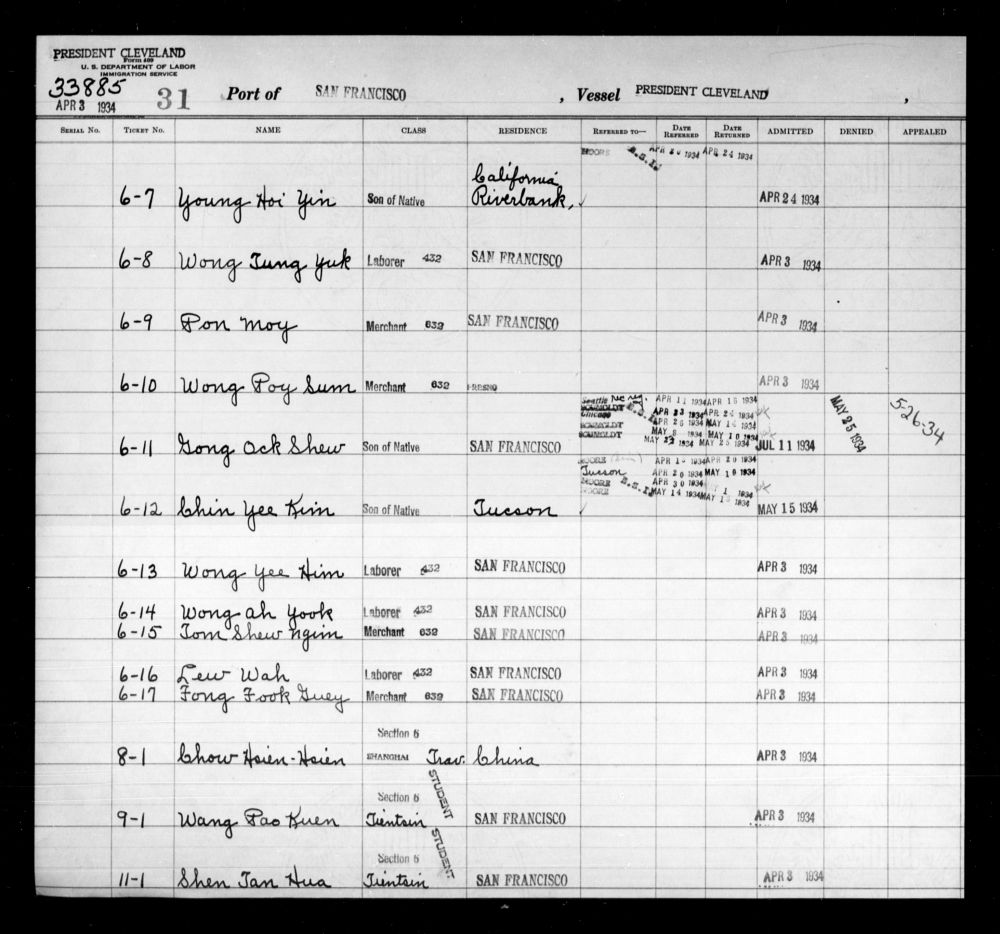 PRESIDENT CLEVELAND
Form 609
U. S. DEPARTMENT OF LABOR
IMMIGRATION SERVICE
33885
APR 3 1934 31 Port of SAN FRANCISCO , Vessel PRESIDENT CLEVELAND ,
SERIAL NO. TICKET NO. NAME CLASS RESIDENCE REFERRED TO— DATE REFERRED DATE RETURNED ADMITTED DENIED APPEALED
MOORE B.S.I. APR 1934 APR 24 1934
California
6-7 Young Hoi Yin Son of Native Riverbank, ✓ APR 24 1934
6-8 Wong Tung Yuk Laborer 432 SAN FRANCISCO APR 3 1934
6-9 Pon Moy Merchant 632 SAN FRANCISCO APR 3 1934
6-10 Wong Poy Sum Merchant 632 FRESNO APR 3 1934
Seattle APR 11 1934 APR 16 1934
B.S.I. APR 23 1934 APR 24 1934
Chicago APR 26 1934 MAY 14 1934
HUMBOLDT MAY 8 1934 MAY 10 1934
MAY 23 1934 MAY 25 1934
6-11 Gong Ock Shew Son of Native SAN FRANCISCO JUL 11 1934 MAY 25 1934 5-26-34
MOORE APR 1934 APR 20 1934
Tucson APR 20 1934 MAY 10 1934
MOORE B.S.I. APR 30 1934 1 1934
MOORE MAY 14 1934 MAY 1934
6-12 Chin Yee Kim Son of Native Tucson ✓ MAY 15 1934
6-13 Wong Yee Him Laborer 432 SAN FRANCISCO APR 3 1934
6-14 Wong Ah Yook Laborer 432 SAN FRANCISCO APR 3 1934
6-15 Tom Shew Ngim Merchant 632 SAN FRANCISCO APR 3 1934
6-16 Lew Wah Laborer 432 SAN FRANCISCO APR 3 1934
6-17 Fong Fook Guey Merchant 632 SAN FRANCISCO APR 3 1934
Section 6
8-1 Chow Hsien-Hsien SHANGHAI Trav. China APR 3 1934
Section 6 STUDENT
9-1 Wang Pao Kuen Tientsin SAN FRANCISCO APR 3 1934
Section 6 STUDENT
11-1 Shen Tan Hua Tientsin SAN FRANCISCO APR 3 1934